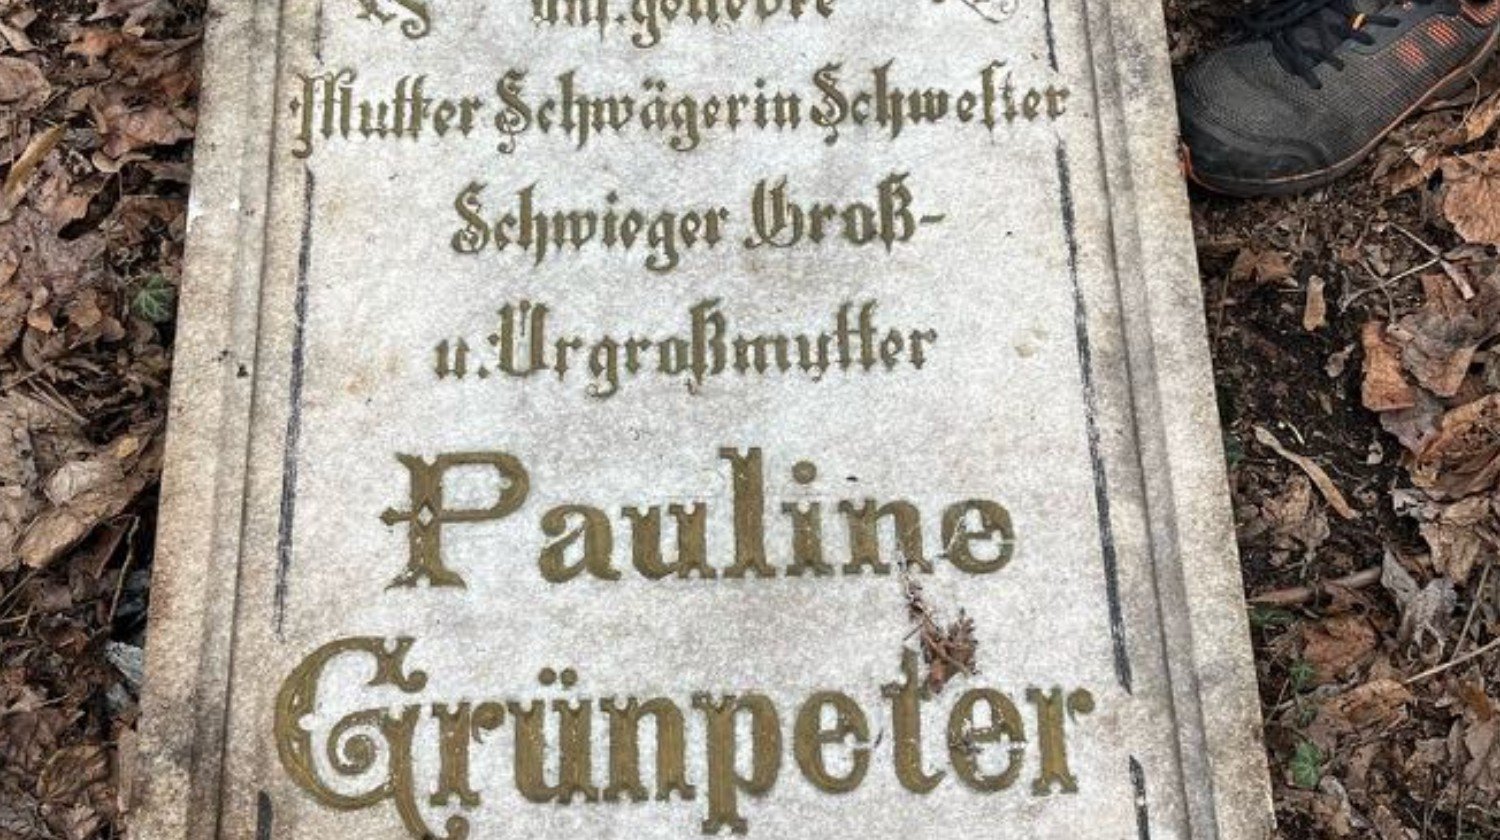 uns.geliebte
Mutter Schwägerin Schwester
Schwieger Groß-
u. Urgroßmutter
Pauline
Grünpeter